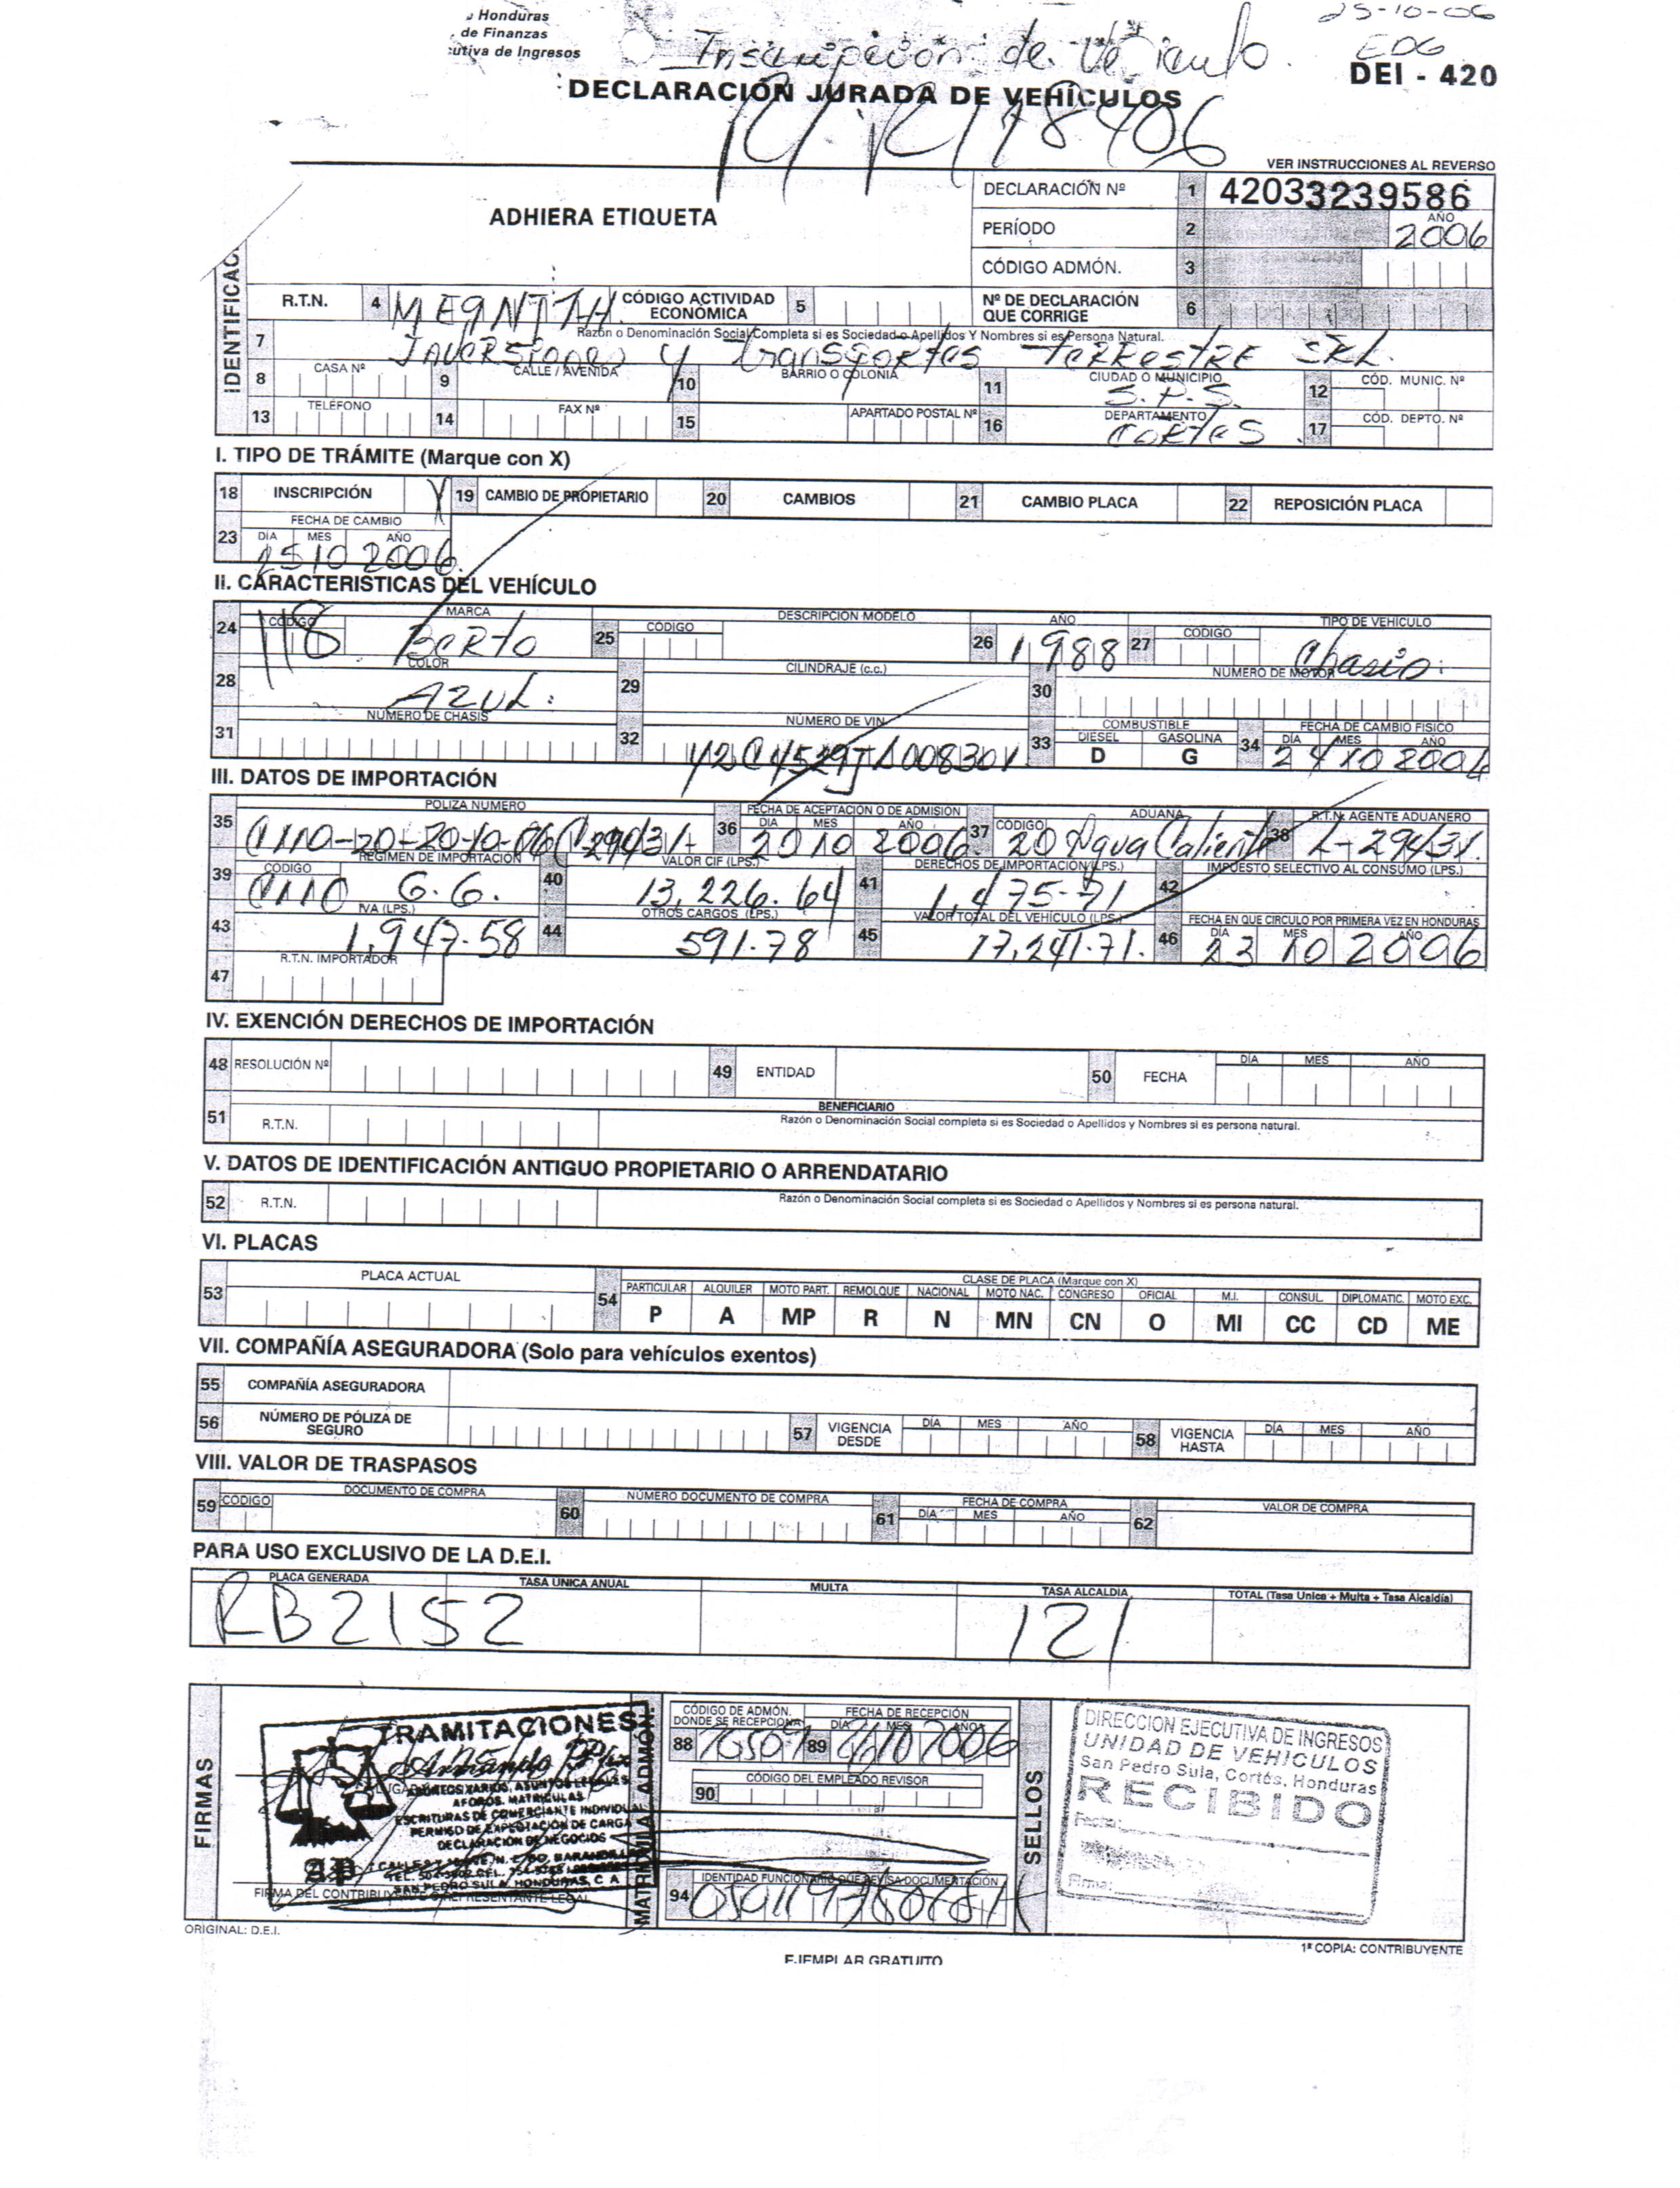 Honduras
de Finanzas
cutiva de Ingresos
25-10-06
Inscripción de Vehiculo.
EDG
DEI - 420
DECLARACIÓN JURADA DE VEHÍCULOS
VER INSTRUCCIONES AL REVERSO
ADHIERA ETIQUETA
DECLARACIÓN Nº 1 42033239586
PERÍODO 2 AÑO 2006
CÓDIGO ADMÓN. 3
IDENTIFICAC
R.T.N. 4 CÓDIGO ACTIVIDAD ECONÓMICA 5 Nº DE DECLARACIÓN QUE CORRIGE 6
7 Razón o Denominación Social Completa si es Sociedad o Apellidos Y Nombres si es Persona Natural.
Inversiones y Transportes Terrestre SRL.
8 CASA Nº 9 CALLE / AVENIDA 10 BARRIO O COLONIA 11 CIUDAD O MUNICIPIO S.P.S. 12 CÓD. MUNIC. Nº
13 TELÉFONO 14 FAX Nº 15 APARTADO POSTAL Nº 16 DEPARTAMENTO Cortes 17 CÓD. DEPTO. Nº
I. TIPO DE TRÁMITE (Marque con X)
18 INSCRIPCIÓN X 19 CAMBIO DE PROPIETARIO 20 CAMBIOS 21 CAMBIO PLACA 22 REPOSICIÓN PLACA
23 FECHA DE CAMBIO DÍA MES AÑO 25 10 2006
II. CARACTERISTICAS DEL VEHÍCULO
24 CÓDIGO 118 MARCA Berto 25 CÓDIGO DESCRIPCIÓN MODELO 26 AÑO 1988 27 CÓDIGO TIPO DE VEHÍCULO Chasis.
28 COLOR AZUL. 29 CILINDRAJE (c.c.) 30 NÚMERO DE MOTOR
31 NÚMERO DE CHASIS 32 NÚMERO DE VIN 33 COMBUSTIBLE DIESEL D GASOLINA G 34 FECHA DE CAMBIO FISICO DÍA MES AÑO
III. DATOS DE IMPORTACIÓN
35 POLIZA NUMERO 36 FECHA DE ACEPTACIÓN O DE ADMISIÓN DIA MES AÑO 20 10 2006 37 CÓDIGO 20 ADUANA Agua Caliente 38 R.T.N. AGENTE ADUANERO
39 CÓDIGO RÉGIMEN DE IMPORTACIÓN G.G. 40 VALOR CIF (LPS.) 13,226.64 41 DERECHOS DE IMPORTACIÓN (LPS.) 1,475-71 42 IMPUESTO SELECTIVO AL CONSUMO (LPS.)
43 IVA (LPS.) 1,947.58 44 OTROS CARGOS (LPS.) 591.78 45 VALOR TOTAL DEL VEHÍCULO (LPS.) 17,241.71. 46 FECHA EN QUE CIRCULO POR PRIMERA VEZ EN HONDURAS DÍA MES AÑO 23 10 2006
47 R.T.N. IMPORTADOR
IV. EXENCIÓN DERECHOS DE IMPORTACIÓN
48 RESOLUCIÓN Nº 49 ENTIDAD 50 FECHA DÍA MES AÑO
51 R.T.N. BENEFICIARIO Razón o Denominación Social completa si es Sociedad o Apellidos y Nombres si es persona natural.
V. DATOS DE IDENTIFICACIÓN ANTIGUO PROPIETARIO O ARRENDATARIO
52 R.T.N. Razón o Denominación Social completa si es Sociedad o Apellidos y Nombres si es persona natural.
VI. PLACAS
53 PLACA ACTUAL 54 CLASE DE PLACA (Marque con X)
PARTICULAR ALQUILER MOTO PART. REMOLQUE NACIONAL MOTO NAC. CONGRESO OFICIAL M.I. CONSUL. DIPLOMATIC. MOTO EXC.
P A MP R N MN CN O MI CC CD ME
VII. COMPAÑÍA ASEGURADORA (Solo para vehículos exentos)
55 COMPAÑÍA ASEGURADORA
56 NÚMERO DE PÓLIZA DE SEGURO 57 VIGENCIA DESDE DÍA MES AÑO 58 VIGENCIA HASTA DÍA MES AÑO
VIII. VALOR DE TRASPASOS
59 CÓDIGO DOCUMENTO DE COMPRA 60 NÚMERO DOCUMENTO DE COMPRA 61 FECHA DE COMPRA DÍA MES AÑO 62 VALOR DE COMPRA
PARA USO EXCLUSIVO DE LA D.E.I.
PLACA GENERADA TASA UNICA ANUAL MULTA TASA ALCALDIA TOTAL (Tasa Unica + Multa + Tasa Alcaldía)
RB2152 121
FIRMAS
TRAMITACIONES
ASUNTOS LEGALES
AFOROS, MATRICULAS
ESCRITURAS DE COMERCIANTE INDIVIDUAL
PERMISO DE EXPLOTACION DE CARGA
DECLARACION DE NEGOCIOS
SAN PEDRO SULA, HONDURAS, C A
FIRMA DEL CONTRIBUYENTE O REPRESENTANTE LEGAL
CÓDIGO DE ADMÓN. DONDE SE RECEPCIONA 88 FECHA DE RECEPCIÓN DÍA MES AÑO 89
90 CÓDIGO DEL EMPLEADO REVISOR
94 IDENTIDAD FUNCIONARIO QUE REVISA DOCUMENTACIÓN
SELLOS
DIRECCION EJECUTIVA DE INGRESOS
UNIDAD DE VEHICULOS
San Pedro Sula, Cortés, Honduras
RECIBIDO
Fecha:
Firma:
ORIGINAL: D.E.I.
EJEMPLAR GRATUITO
1ª COPIA: CONTRIBUYENTE